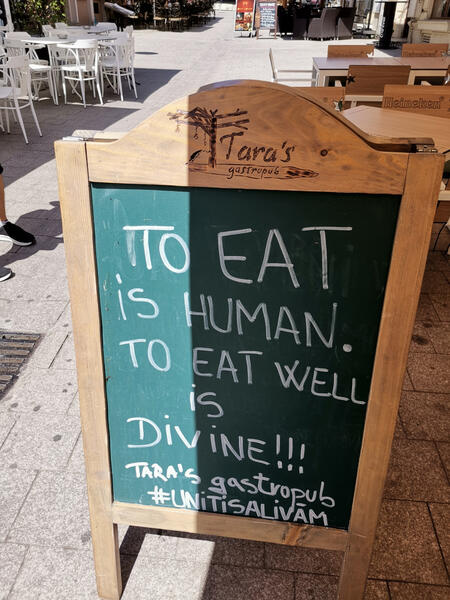 Heineken
Tara's
gastropub
TO EAT
iS HUMAN.
TO EAT WELL
iS
DiViNE!!!
TARA'S gastropub
#UNiTiSALiVĂM